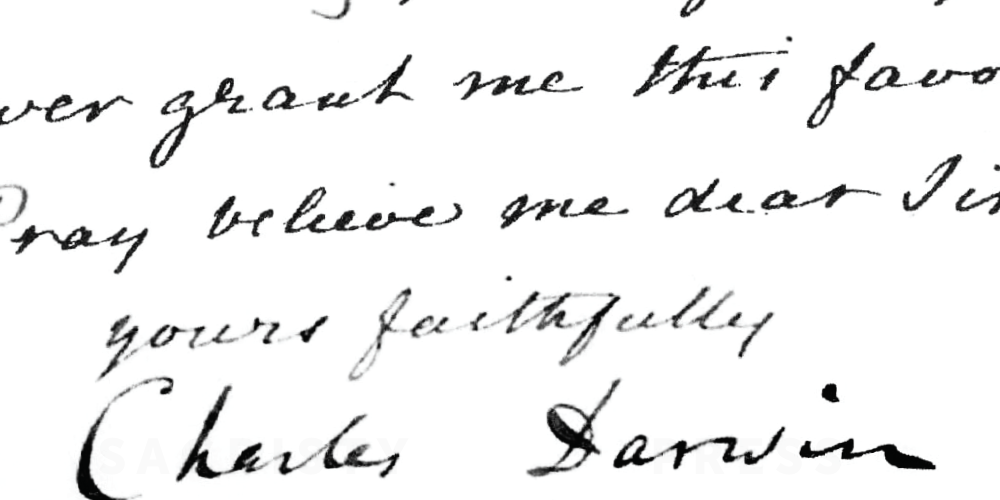 ver grant me this favo
Pray believe me dear Sir
yours faithfully
Charles Darwin